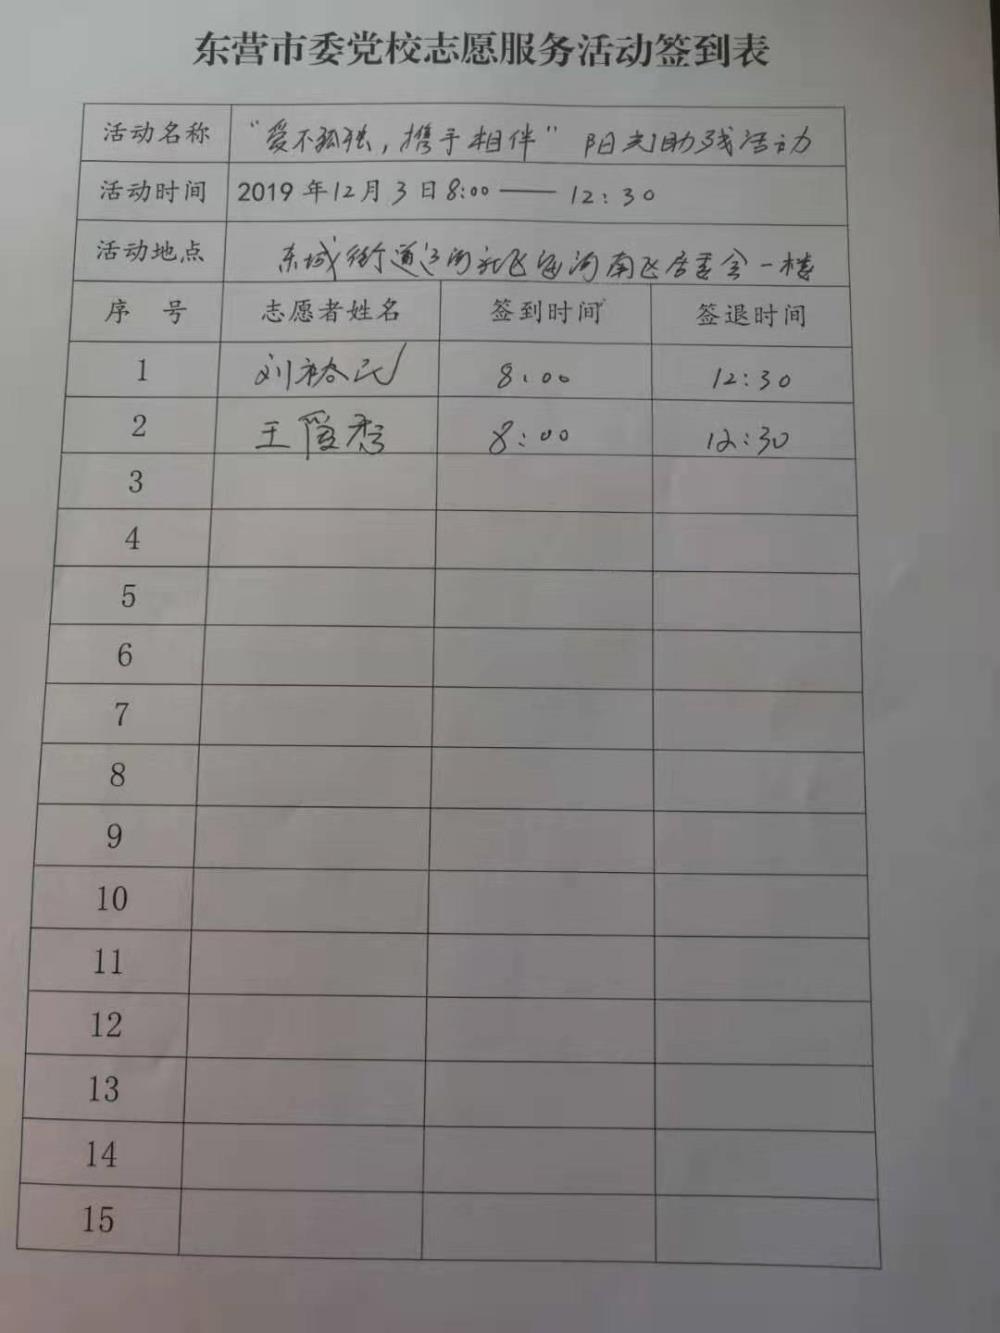 东营市委党校志愿服务活动签到表
活动名称 “爱不孤独，携手相伴” 阳光助残活动
活动时间 2019年12月3日8:00 —— 12:30
活动地点 东城街道 居委会一楼
序 号 志愿者姓名 签到时间 签退时间
1 刘裕民 8:00 12:30
2 王爱秀 8:00 12:30
3
4
5
6
7
8
9
10
11
12
13
14
15